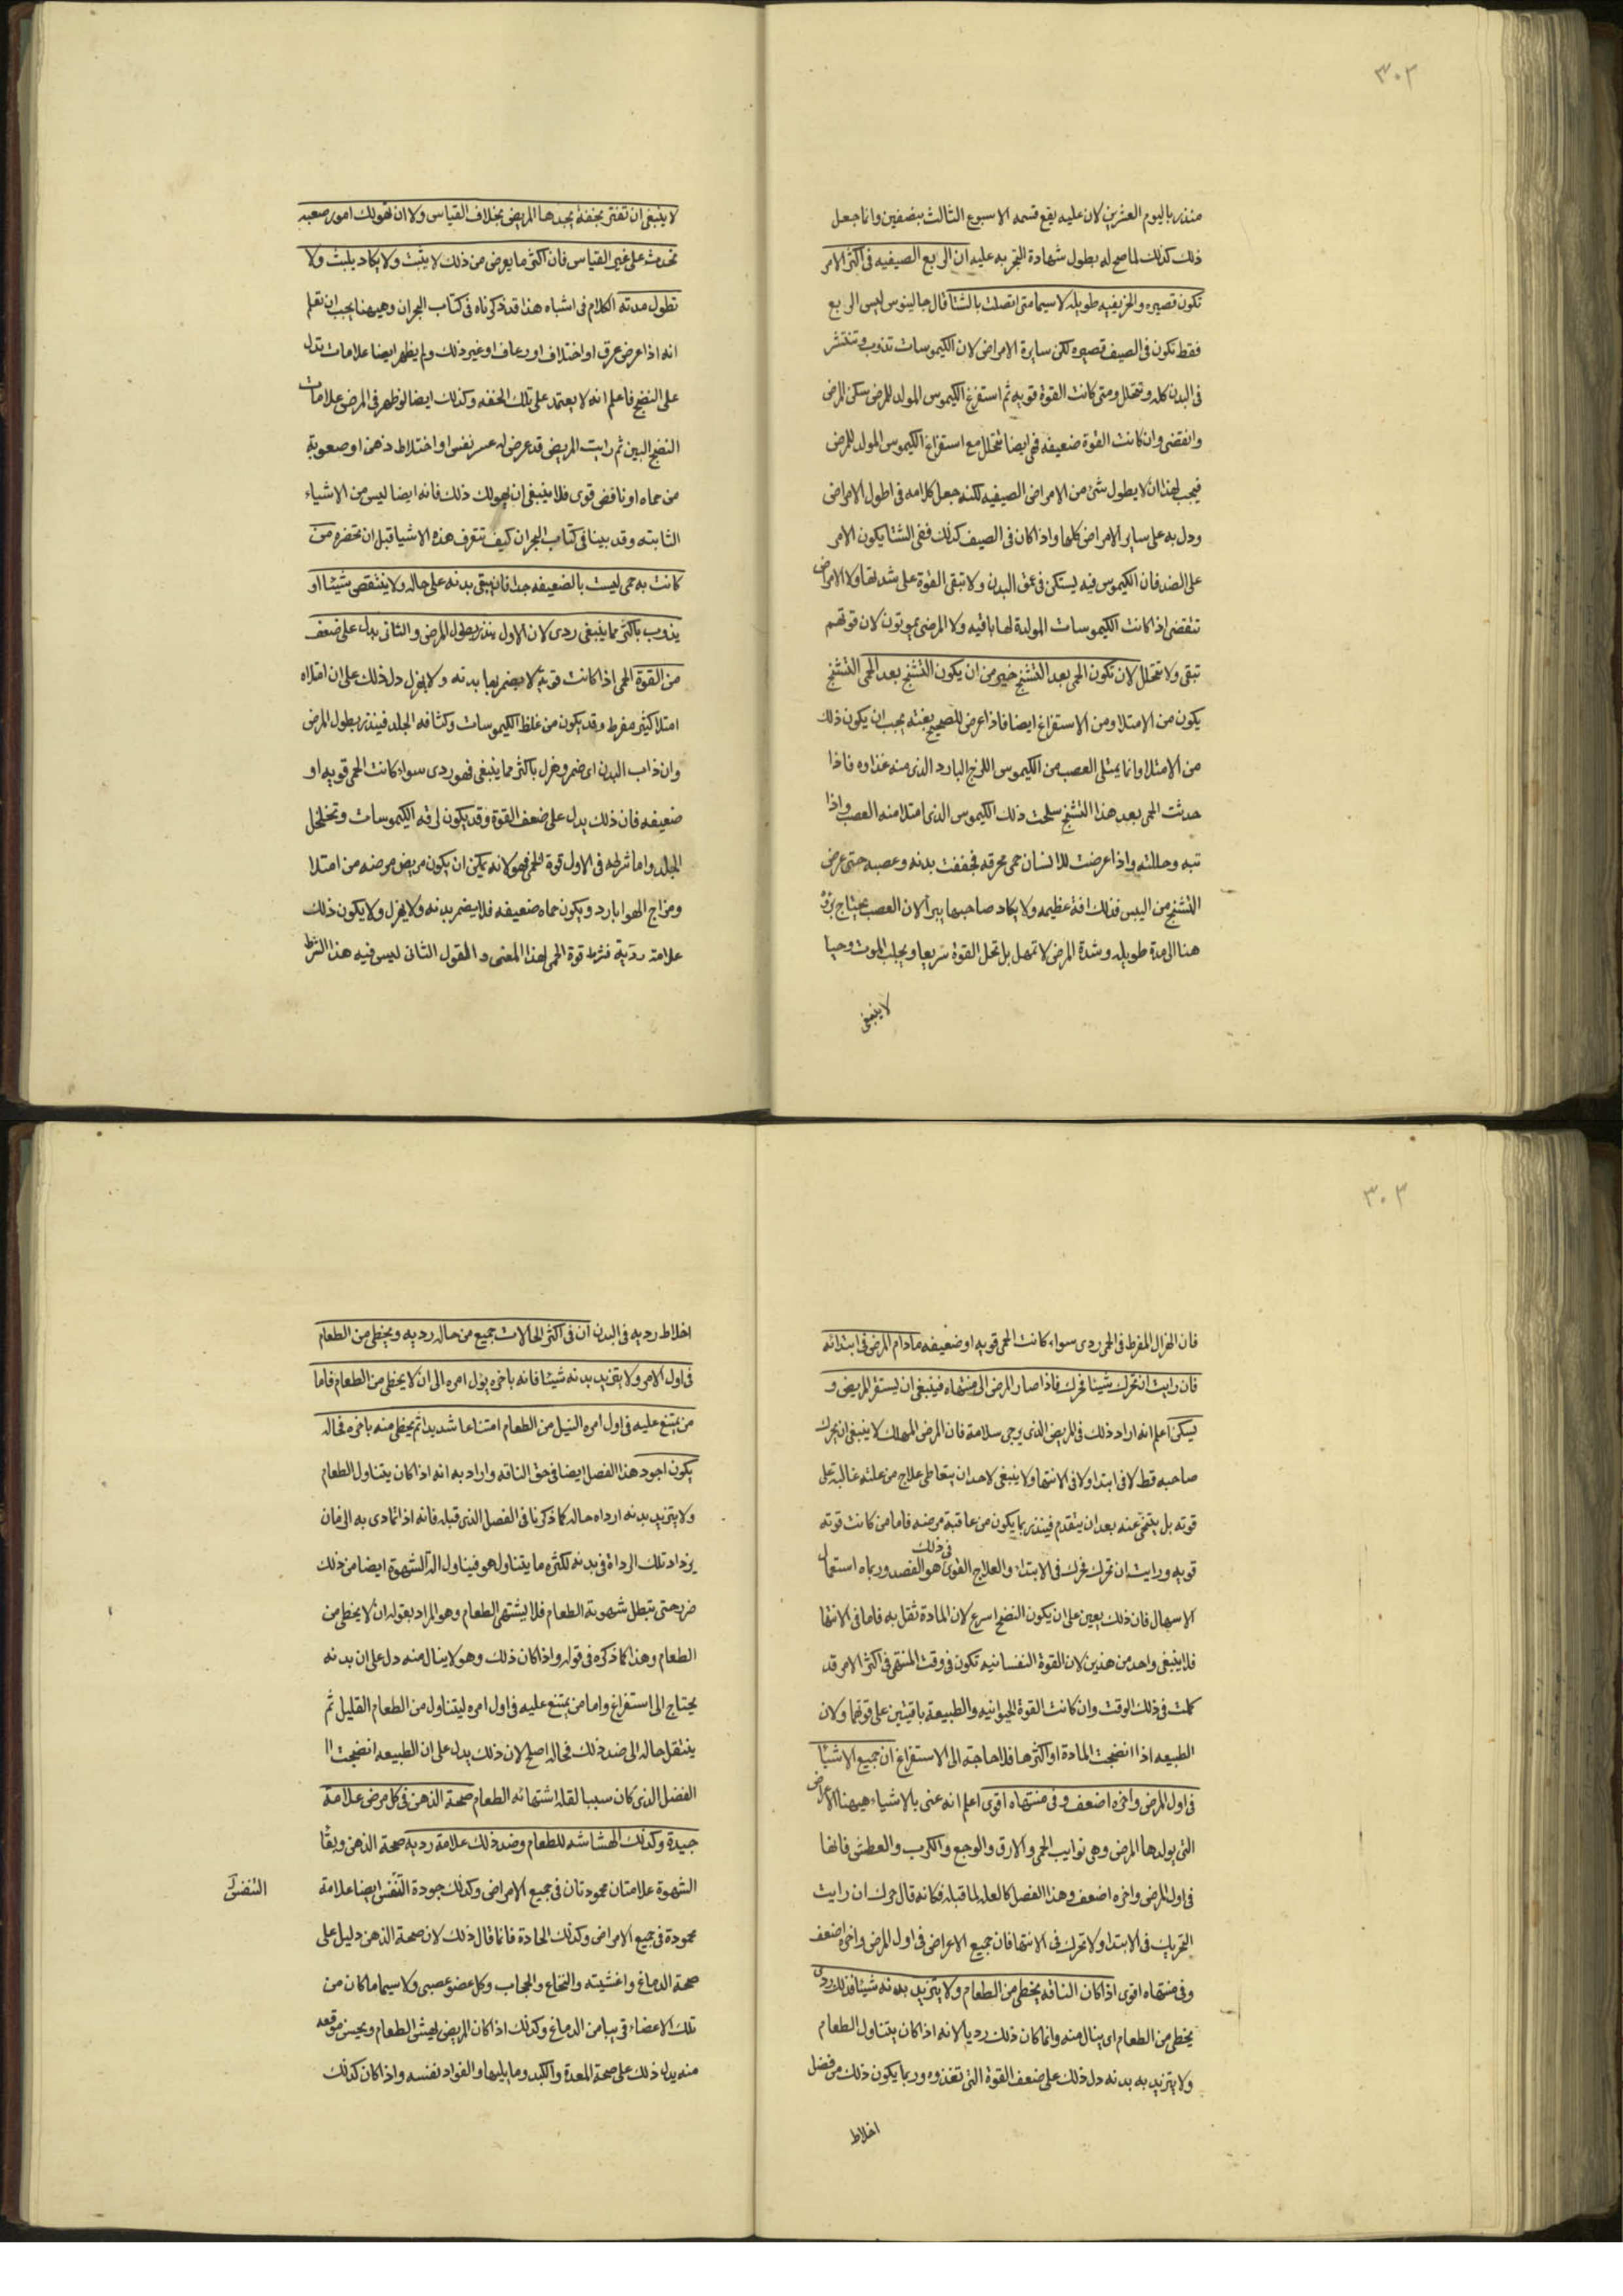 ٣٠٢
منذر باليوم العشرين لان عليه يقع قسمه الاسبوع الثالث بنصفين وانما جعل
ذلك كذلك لما صح له بطول شهادة التجربه عليه ان الربع الصيفيه فى اكثر الامر
تكون قصيره والخريفيه طويله لاسيما متى اتصلت بالشتا قال جالينوس ليس الربع
فقط تكون فى الصيف قصيره لكن سايرة الامراض لان الكيموسات تذوب وتنتشر
فى البدن كله وتتحلل ومتى كانت القوة قويه ثم استفرغ الكيموس المولد للمرض سكن المرض
وانقضى وان كانت القوة ضعيفه فهى ايضا تتحلل مع استفراغ الكيموس المولد للمرض
فيجب لهذا ان لا يطول شئ من الامراض الصيفيه لكنه جعل كلامه فى اطول الامراض
ودل به على ساير الامراض كلها واذا كان فى الصيف كذلك ففى الشتا يكون الامر
على الضد فان الكيموس فيه يستكن فى عمق البدن ولا تبقى القوة على شدتها ولا الامراض
تنقضى اذا كانت الكيموسات المولدة لها باقيه ولا المرضى يموتون لان قوتهم
تبقى ولا تتحلل لان تكون الحمى بعد التشنج خير من ان يكون التشنج بعد الحمى التشنج
يكون من الامتلا ومن الاستفراغ ايضا فاذا عرض للصحيح بغتة يجب ان يكون ذلك
من الامتلا وانما يمتلى العصب من الكيموس اللزج البارد الذى منه غذاوه فاذا
حدثت الحمى بعد هذا التشنج سلخت ذلك الكيموس الذى امتلا منه العصب واذا
تبه وحللته واذا عرضت للانسان حمى محرقه فجففت بدنه وعصبه حتى عرض
التشنج من اليبس فذلك افة عظيمه ولا يكاد صاحبها يبرأ لان العصب يحتاج برؤه
هنا الى مدة طويله وشدة المرض لا تمهل بل تحل القوة سريعا ويجلب الموت وحيا
لا ينبغى
لا ينبغى ان تغتر بخفة يجدها المريض بخلاف القياس ولا ان تهولك امور صعبه
تحدث على غير القياس فان اكثر ما يعرض من ذلك لا يثبت ولا يكاد يلبث ولا
تطول مدته الكلام فى اشباه هذا قد ذكرناه فى كتاب البحران وهيهنا يجب ان نعلم
انه اذا عرض عرق او اختلاف او رعاف او غير ذلك ولم يظهر ايضا علامات تدل
على النضج فاعلم انه لا يعتمد على تلك الخفه وكذلك ايضا لو ظهر فى المرض علامات
النضج البين ثم رايت المريض قد عرض له عسر نفس او اختلاط ذهن او صعوبة
من حماه او نافض قوى فلا ينبغى ان يهولك ذلك فانه ايضا ليس من الاشياء
الثابته وقد بينا فى كتاب البحران كيف تتعرف هذه الاشيا قبل ان تحضره من
كانت به حمى ليست بالضعيفه جدا فان يبقى بدنه على حاله ولا ينتقص شيئا او
يذوب باكثر مما ينبغى ردى لان الاول ينذر بطول المرض والثانى يدل على ضعف
من القوة الحمى اذا كانت قوية لا يضمر بها بدنه ولا يهزل دل ذلك على ان امتلاه
امتلا كثير مفرط وقد يكون من غلظ الكيموسات وكثافة الجلد فينذر بطول المرض
وان ذاب البدن اى ضمر وهزل باكثر مما ينبغى فهو ردى سواء كانت الحمى قويه او
ضعيفه فان ذلك يدل على ضعف القوة وقد يكون لرقة الكيموسات وتخلخل
الجلد واما شرطه فى الاول قوة الحمى فهو لانه يمكن ان يكون مريض مرضه من امتلا
ومزاج الهوا بارد ويكون حماه ضعيفه فلا يضمر بدنه ولا يهزل ولا يكون ذلك
علامة ردية فشرط قوة الحمى لهذا المعنى و القول الثانى ليس فيه هذا الشرط
٣٠٣
فان الهزال المفرط فى الحمى ردى سواء كانت الحمى قويه او ضعيفه مادام المرض فى ابتدائه
فان رايت ان تحرك شيئا فحرك فاذا صار المرض الى منتهاه فينبغى ان يستقر المريض و
يسكن اعلم انه اراد ذلك فى المريض الذى يرجى سلامة فان المرض المهلك لا ينبغى ان يحرك
صاحبه قط لا فى ابتدا ولا فى الانتها ولا ينبغى لاحد ان يتعاطى علاج من علته غالبة على
قوته بل يتنحى عنه بعد ان يتقدم فينذر بما يكون من عاقبة مرضه فاما من كانت قوته
قويه ورايت ان تحرك فحرك فى الابتداء والعلاج القوى فى ذلك هو الفصد وربما استعمال
الاسهال فان ذلك يعين على ان يكون النضج اسرع لان المادة تقل به فاما فى الانتها
فلا ينبغى واحد من هذين لان القوة النفسانيه تكون فى وقت المنتهى فى اكثر الامر قد
كلت فى ذلك الوقت وان كانت القوة الحيوانيه والطبيعة باقيتين على قوتهما ولان
الطبيعه اذا انضجت المادة او اكثرها فلا حاجة الى الاستفراغ ان جميع الاشيا
فى اول المرض وآخره اضعف وفى منتهاه اقوى اعلم انه عنى بالاشياء هيهنا الاعراض
التى يولدها المرض وهى نوايب الحمى والارق والوجع والكرب والعطش فانها
فى اول المرض واخره اضعف وهذا الفصل كالعله لما قبله فكانه قال حرك ان رايت
التحريك فى الابتدا ولا تحرك فى الانتها فان جميع الاعراض فى اول المرض واخره اضعف
وفى منتهاه اقوى اذا كان الناقه يحظى من الطعام ولا يتزيد بدنه شيئا فذلك ردى
يحظى من الطعام اى ينال منه وانما كان ذلك رديا لانه اذا كان يتناول الطعام
ولا يتزيد به بدنه دل ذلك على ضعف القوة التى تغذوه وربما يكون ذلك من فضل
اخلاط
اخلاط رديه فى البدن ان فى اكثر الحالات جميع من حاله رديه ويحظى من الطعام
فى اول الامر ولا يتزيد بدنه شيئا فانه باخره يول امره الى ان لا يحظى من الطعام فاما
من يمتنع عليه فى اول امره النيل من الطعام امتناعا شديدا ثم يحظى منه باخره فحاله
يكون اجود هذا الفصل ايضا فى حق الناقه واراد به انه اذا كان يتناول الطعام
ولا يتزيد بدنه ارداه حاله كما ذكرنا فى الفصل الذى قبله فانه اذا تمادى به الزمان
يزداد تلك الرداة فى بدنه لكثره ما يتناول هو فيناول الة الشهوة ايضا من ذلك
ضرر حتى تبطل شهوة الطعام فلا يشتهى الطعام وهو المراد بقوله ان لا يحظى من
الطعام وهذا كما ذكره فى قوله واذا كان ذلك وهو لا ينال منه دل على ان بدنه
يحتاج الى استفراغ واما من يمتنع عليه فى اول امره ليتناول من الطعام القليل ثم
ينتقل حاله الى ضد ذلك فحاله اصلح لان ذلك يدل على ان الطبيعه انضجت
الفضل الذى كان سببا لقلة اشتهائه الطعام صحة الذهن فى كل مرض علامة
جيدة وكذلك الهشاشه للطعام وضد ذلك علامة رديه صحة الذهن وبقا
الشهوة علامتان محمودتان فى جميع الامراض وكذلك جودة التنفس ايضا علامة
محمودة فى جميع الامراض وكذلك الحادة فانما قال ذلك لان صحة الذهن دليل على
صحة الدماغ واغشيته والنخاع والحجاب وكل عضو عصبى ولا سيما ما كان من
تلك الاعضاء قريبا من الدماغ وكذلك اذا كان المريض يهش الطعام ويحسن موقعه
منه يدل ذلك على صحة المعدة والكبد وما يليها والفواد نفسه واذا كان كذلك
التنفس